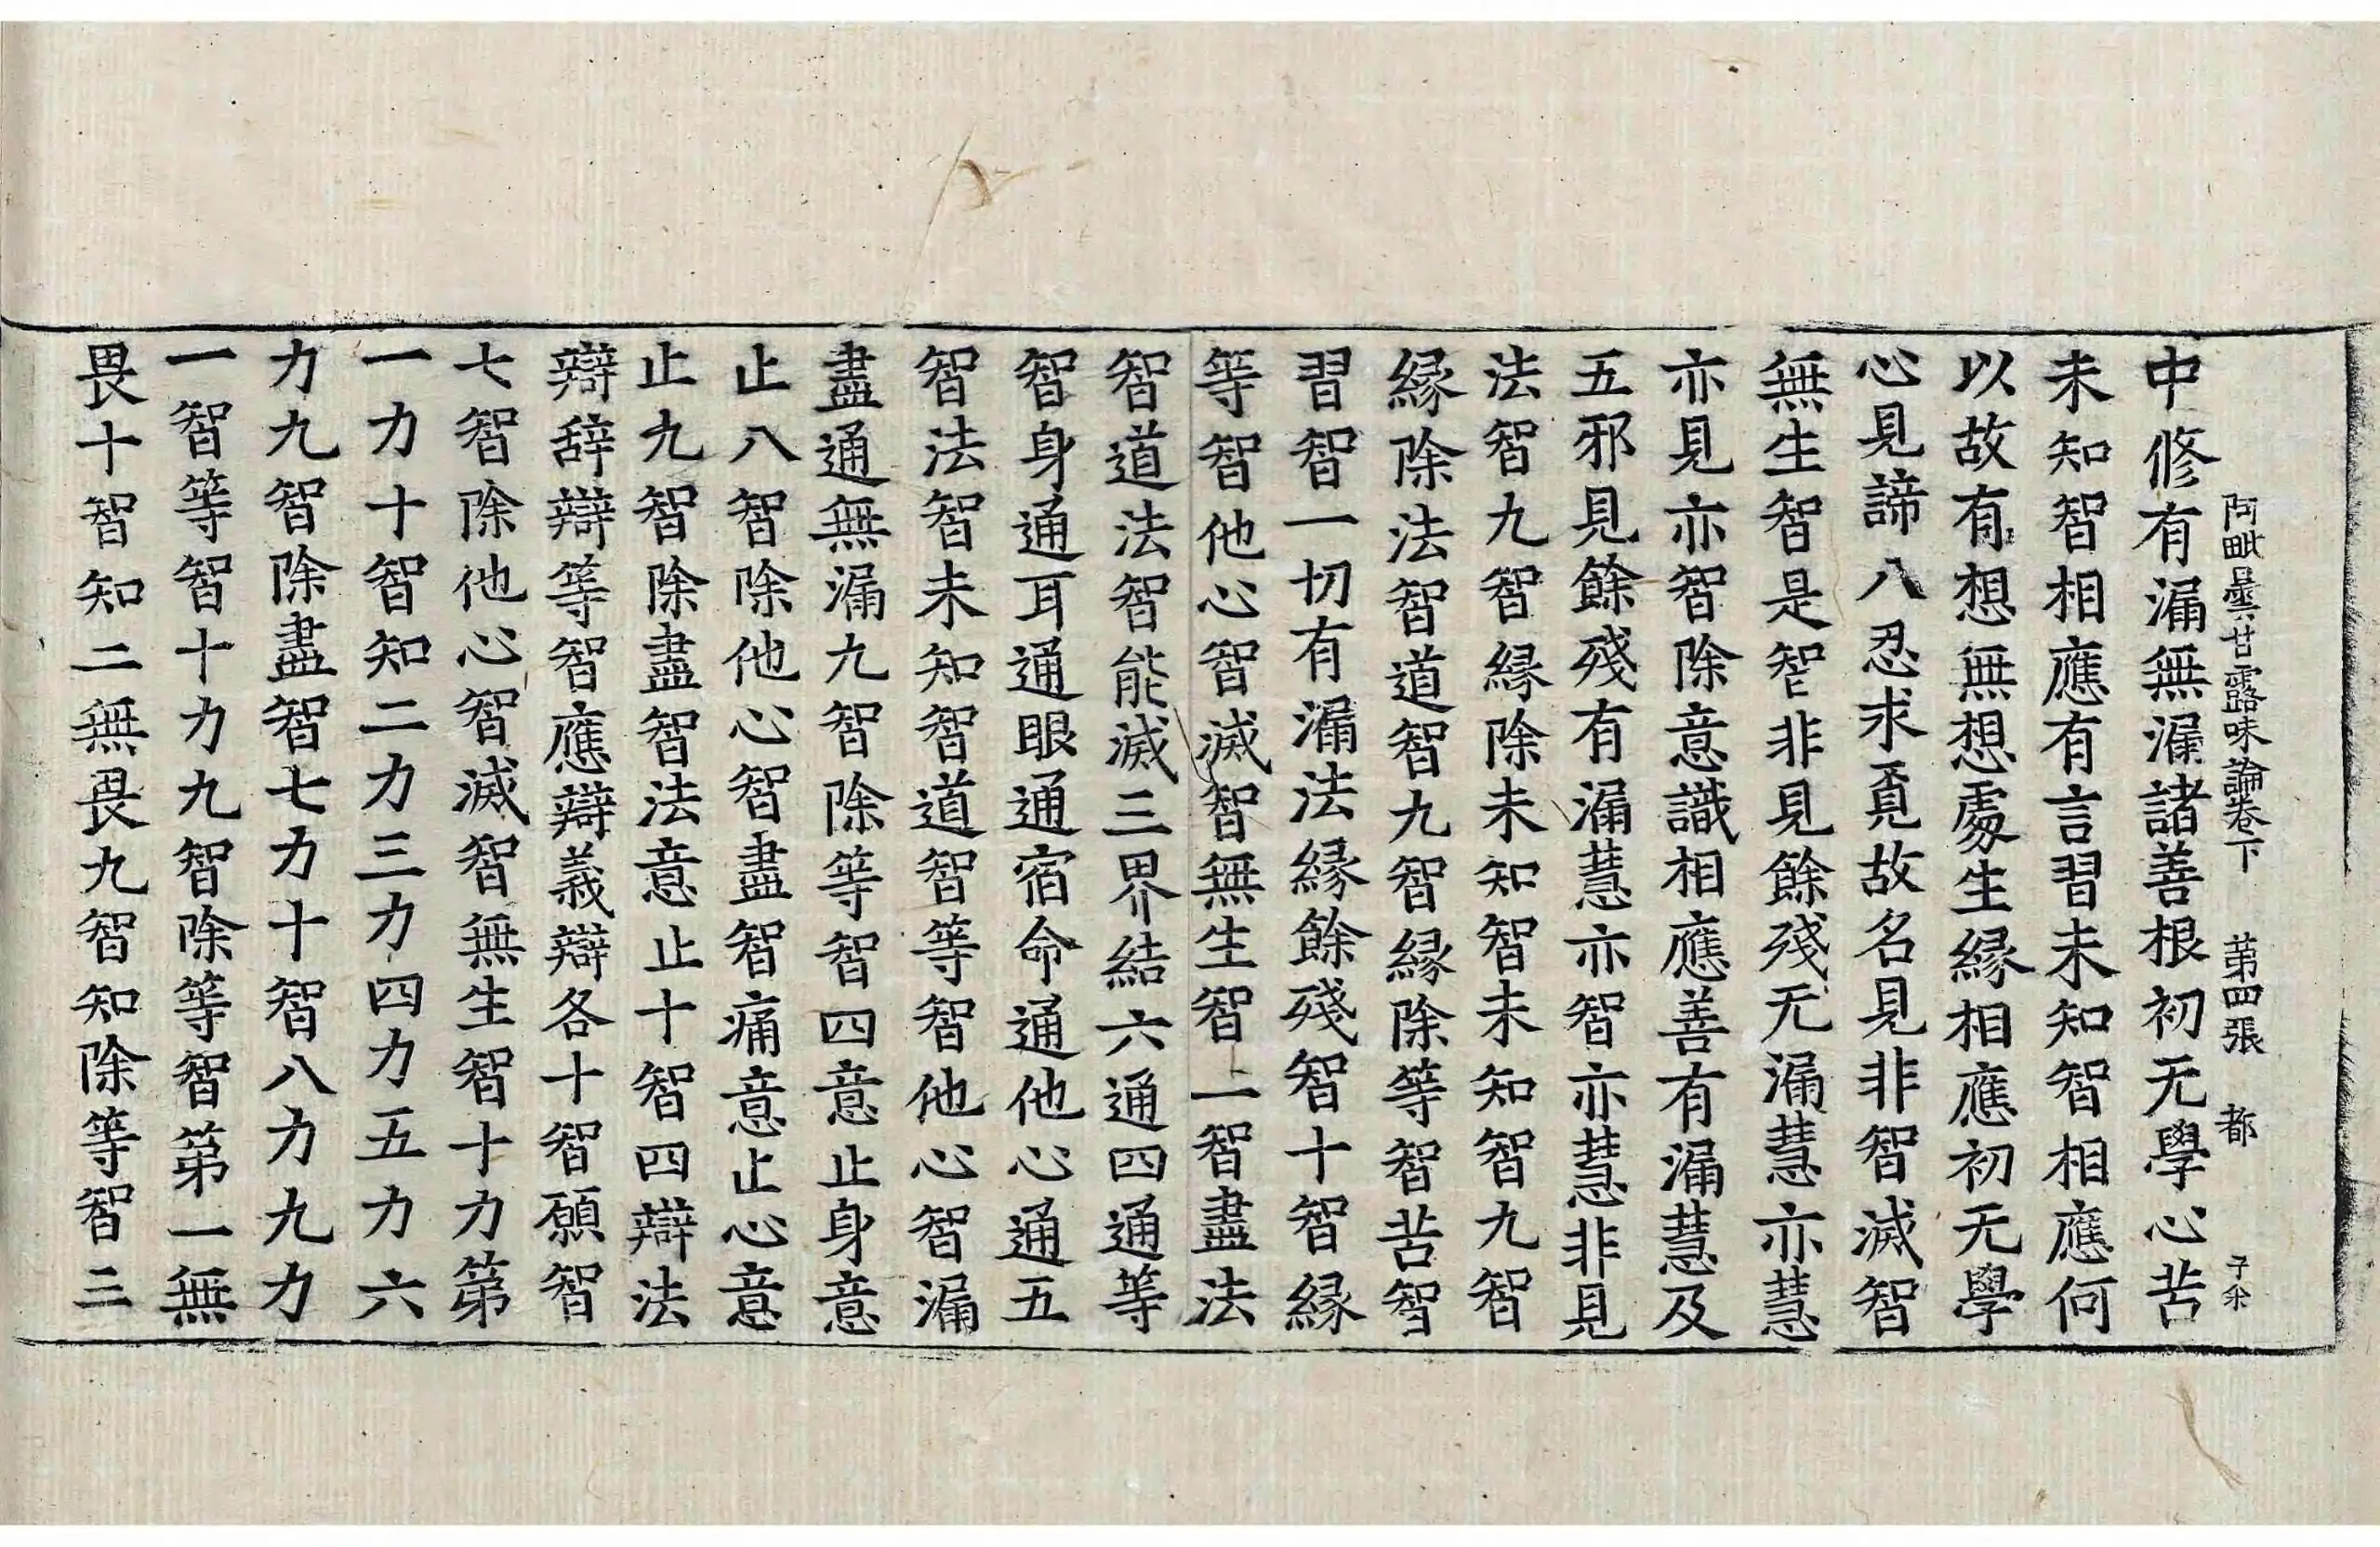 阿毗曇甘露味論卷下　第四張　都　子余
中修有漏無漏諸善根初无學心苦
未知智相應有言習未知智相應何
以故有想無想處生緣相應初无學
心見諦八忍求覓故名見非智滅智
無生智是智非見餘殘无漏慧亦慧
亦見亦智除意識相應善有漏慧及
五邪見餘殘有漏慧亦智亦慧非見
法智九智緣除未知智未知智九智
緣除法智道智九智緣除等智苦智
習智一切有漏法緣餘殘智十智緣
等智他心智滅智無生智一智盡法
智道法智能滅三界結六通四通等
智身通耳通眼通宿命通他心通五
智法智未知智道智等智他心智漏
盡通無漏九智除等智四意止身意
止八智除他心智盡智痛意止心意
止九智除盡智法意止十智四辯法
辯辞辯等智應辯義辯各十智願智
七智除他心智滅智無生智十力第
一力十智知二力三力四力五力六
力九智除盡智七力十智八力九力
一智等智十力九智除等智第一無
畏十智知二無畏九智知除等智三